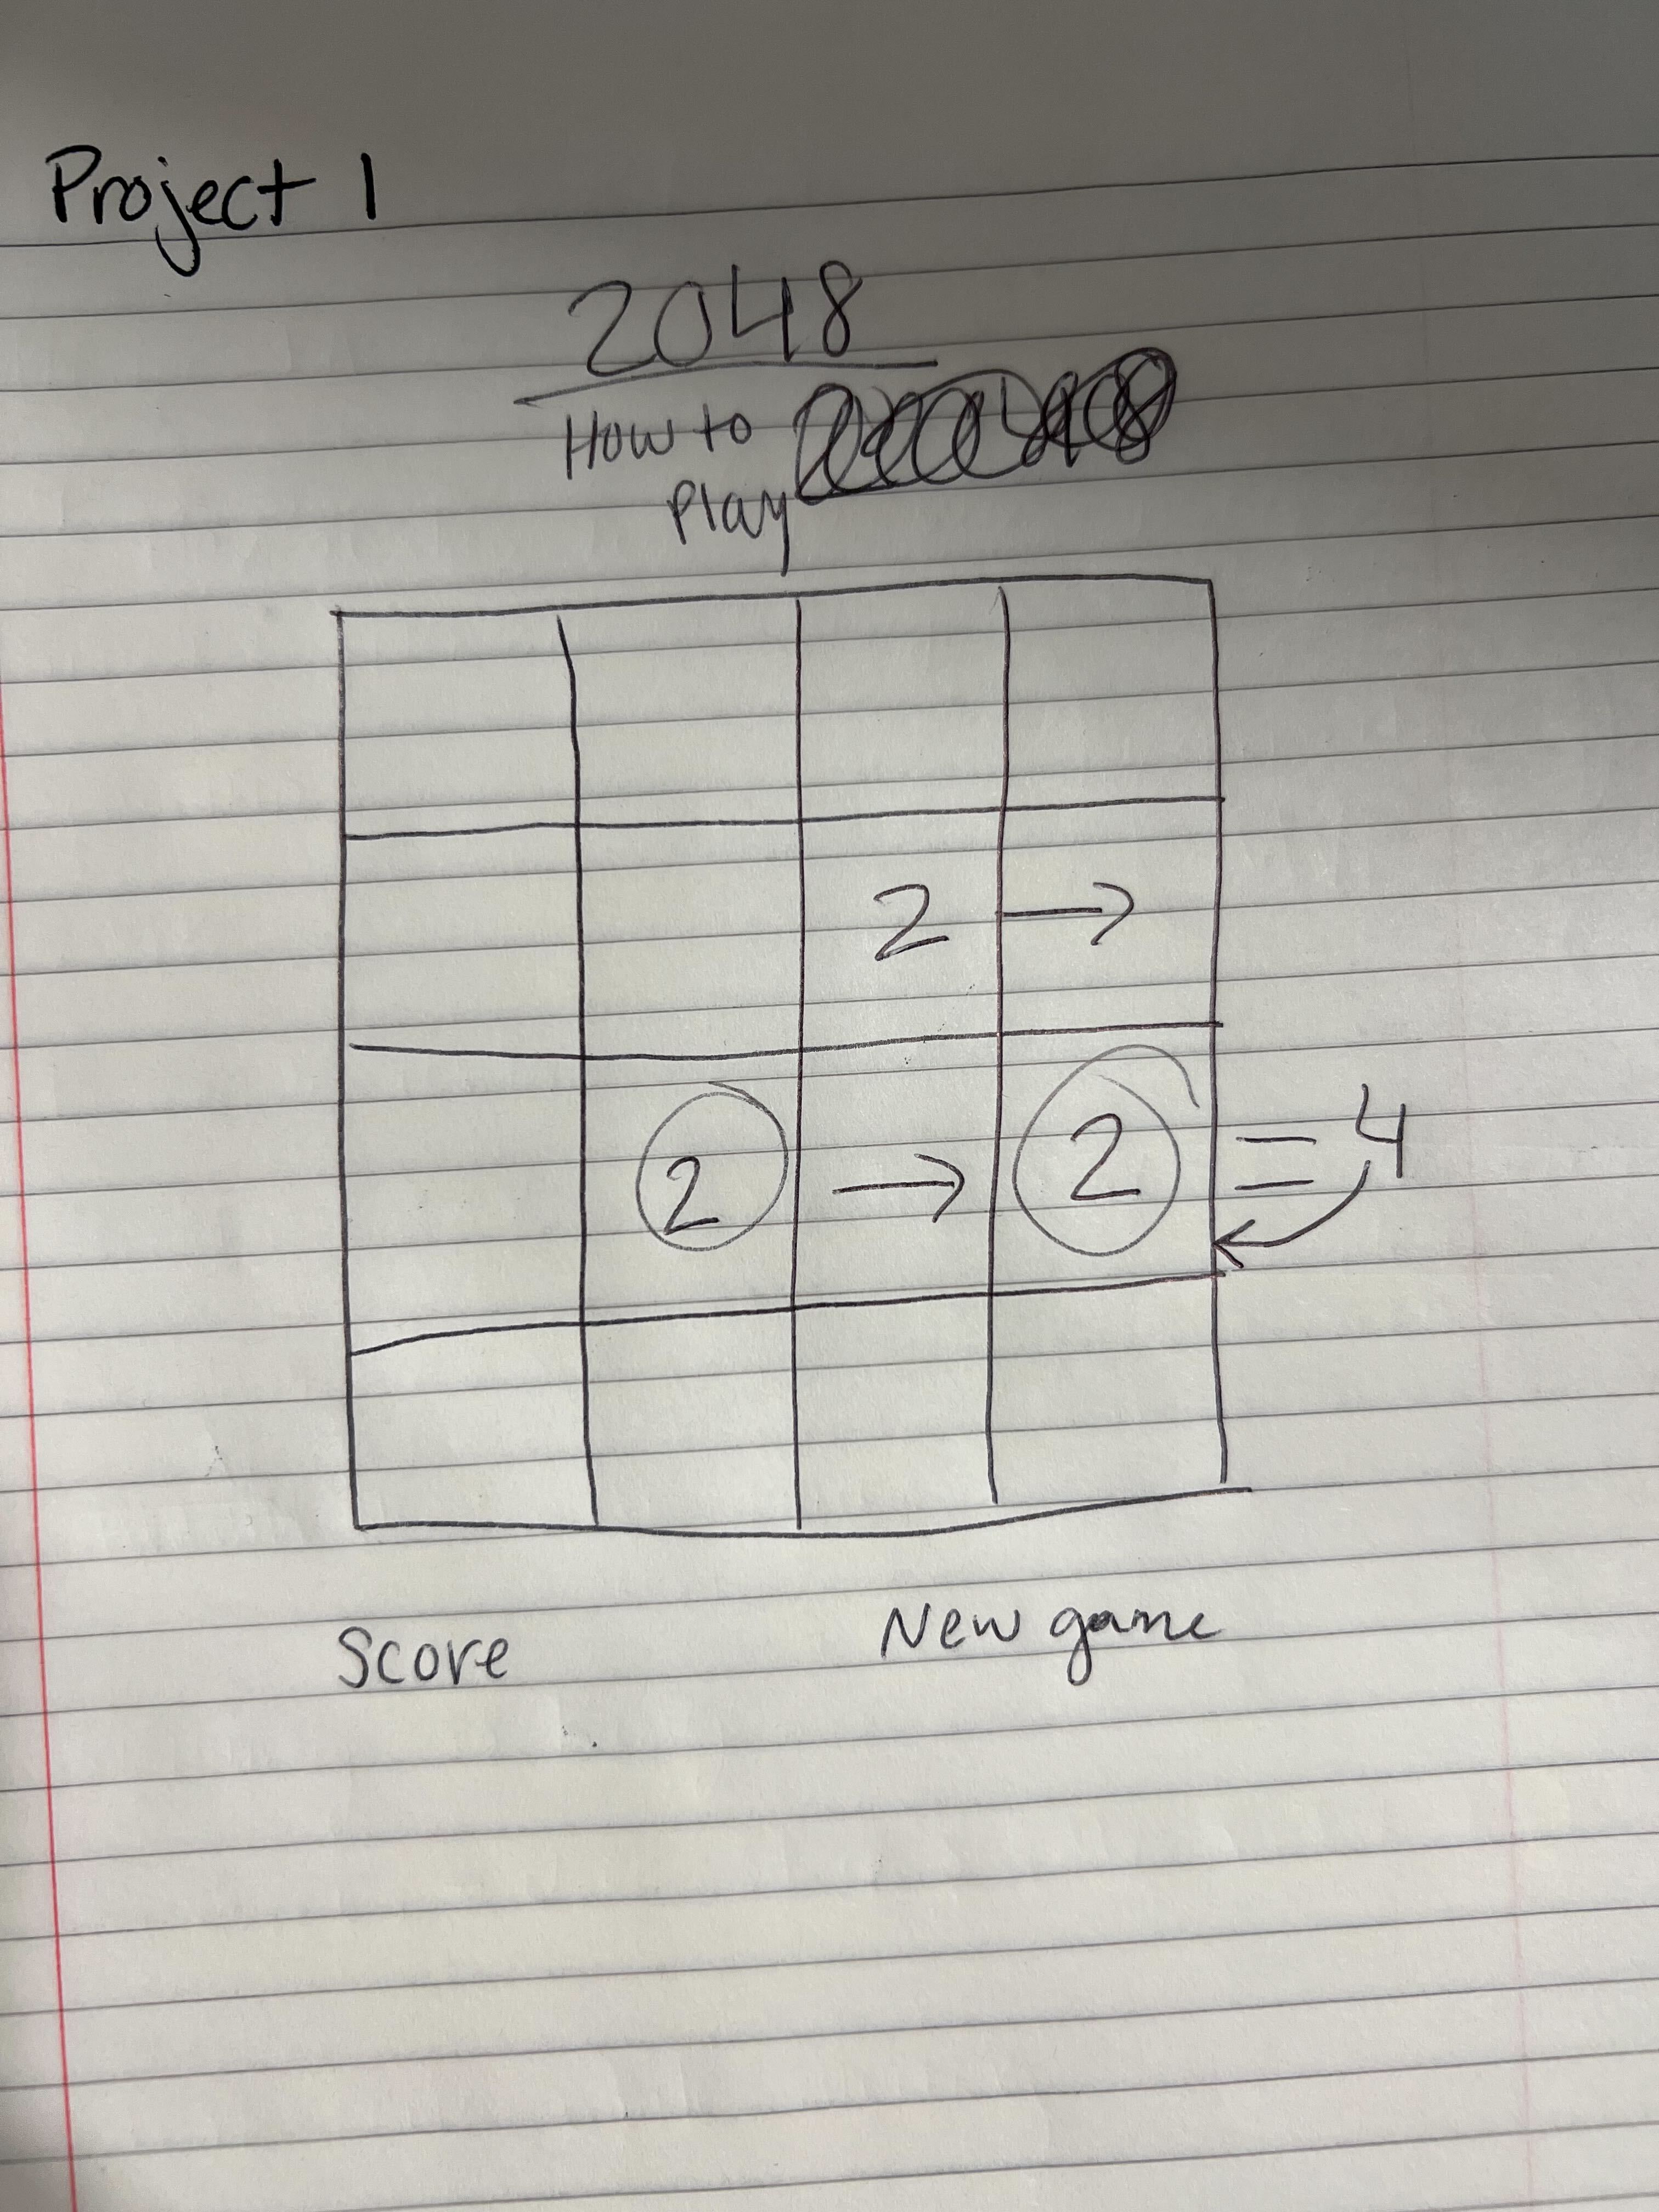 Project 1
2048
How to
Play
2 →
2 → 2 = 4
Score New game